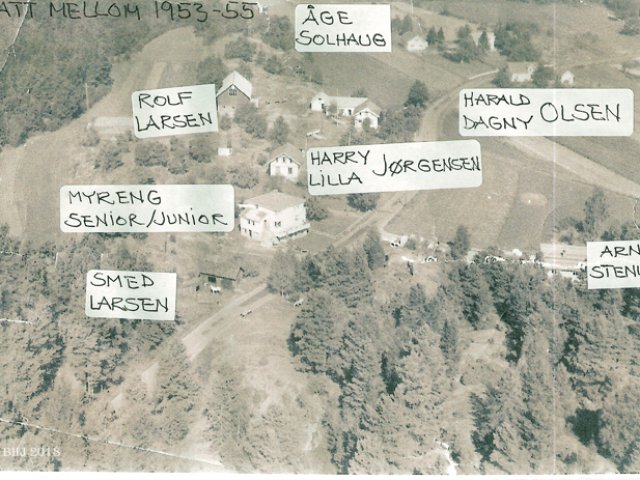 ATT MELLOM 1953-55
ÅGE
SOLHAUG
ROLF
LARSEN
HARALD
DAGNY OLSEN
HARRY
LILLA JØRGENSEN
MYRENG
SENIOR/JUNIOR
ARN
STEN
SMED
LARSEN
BHJ 2018